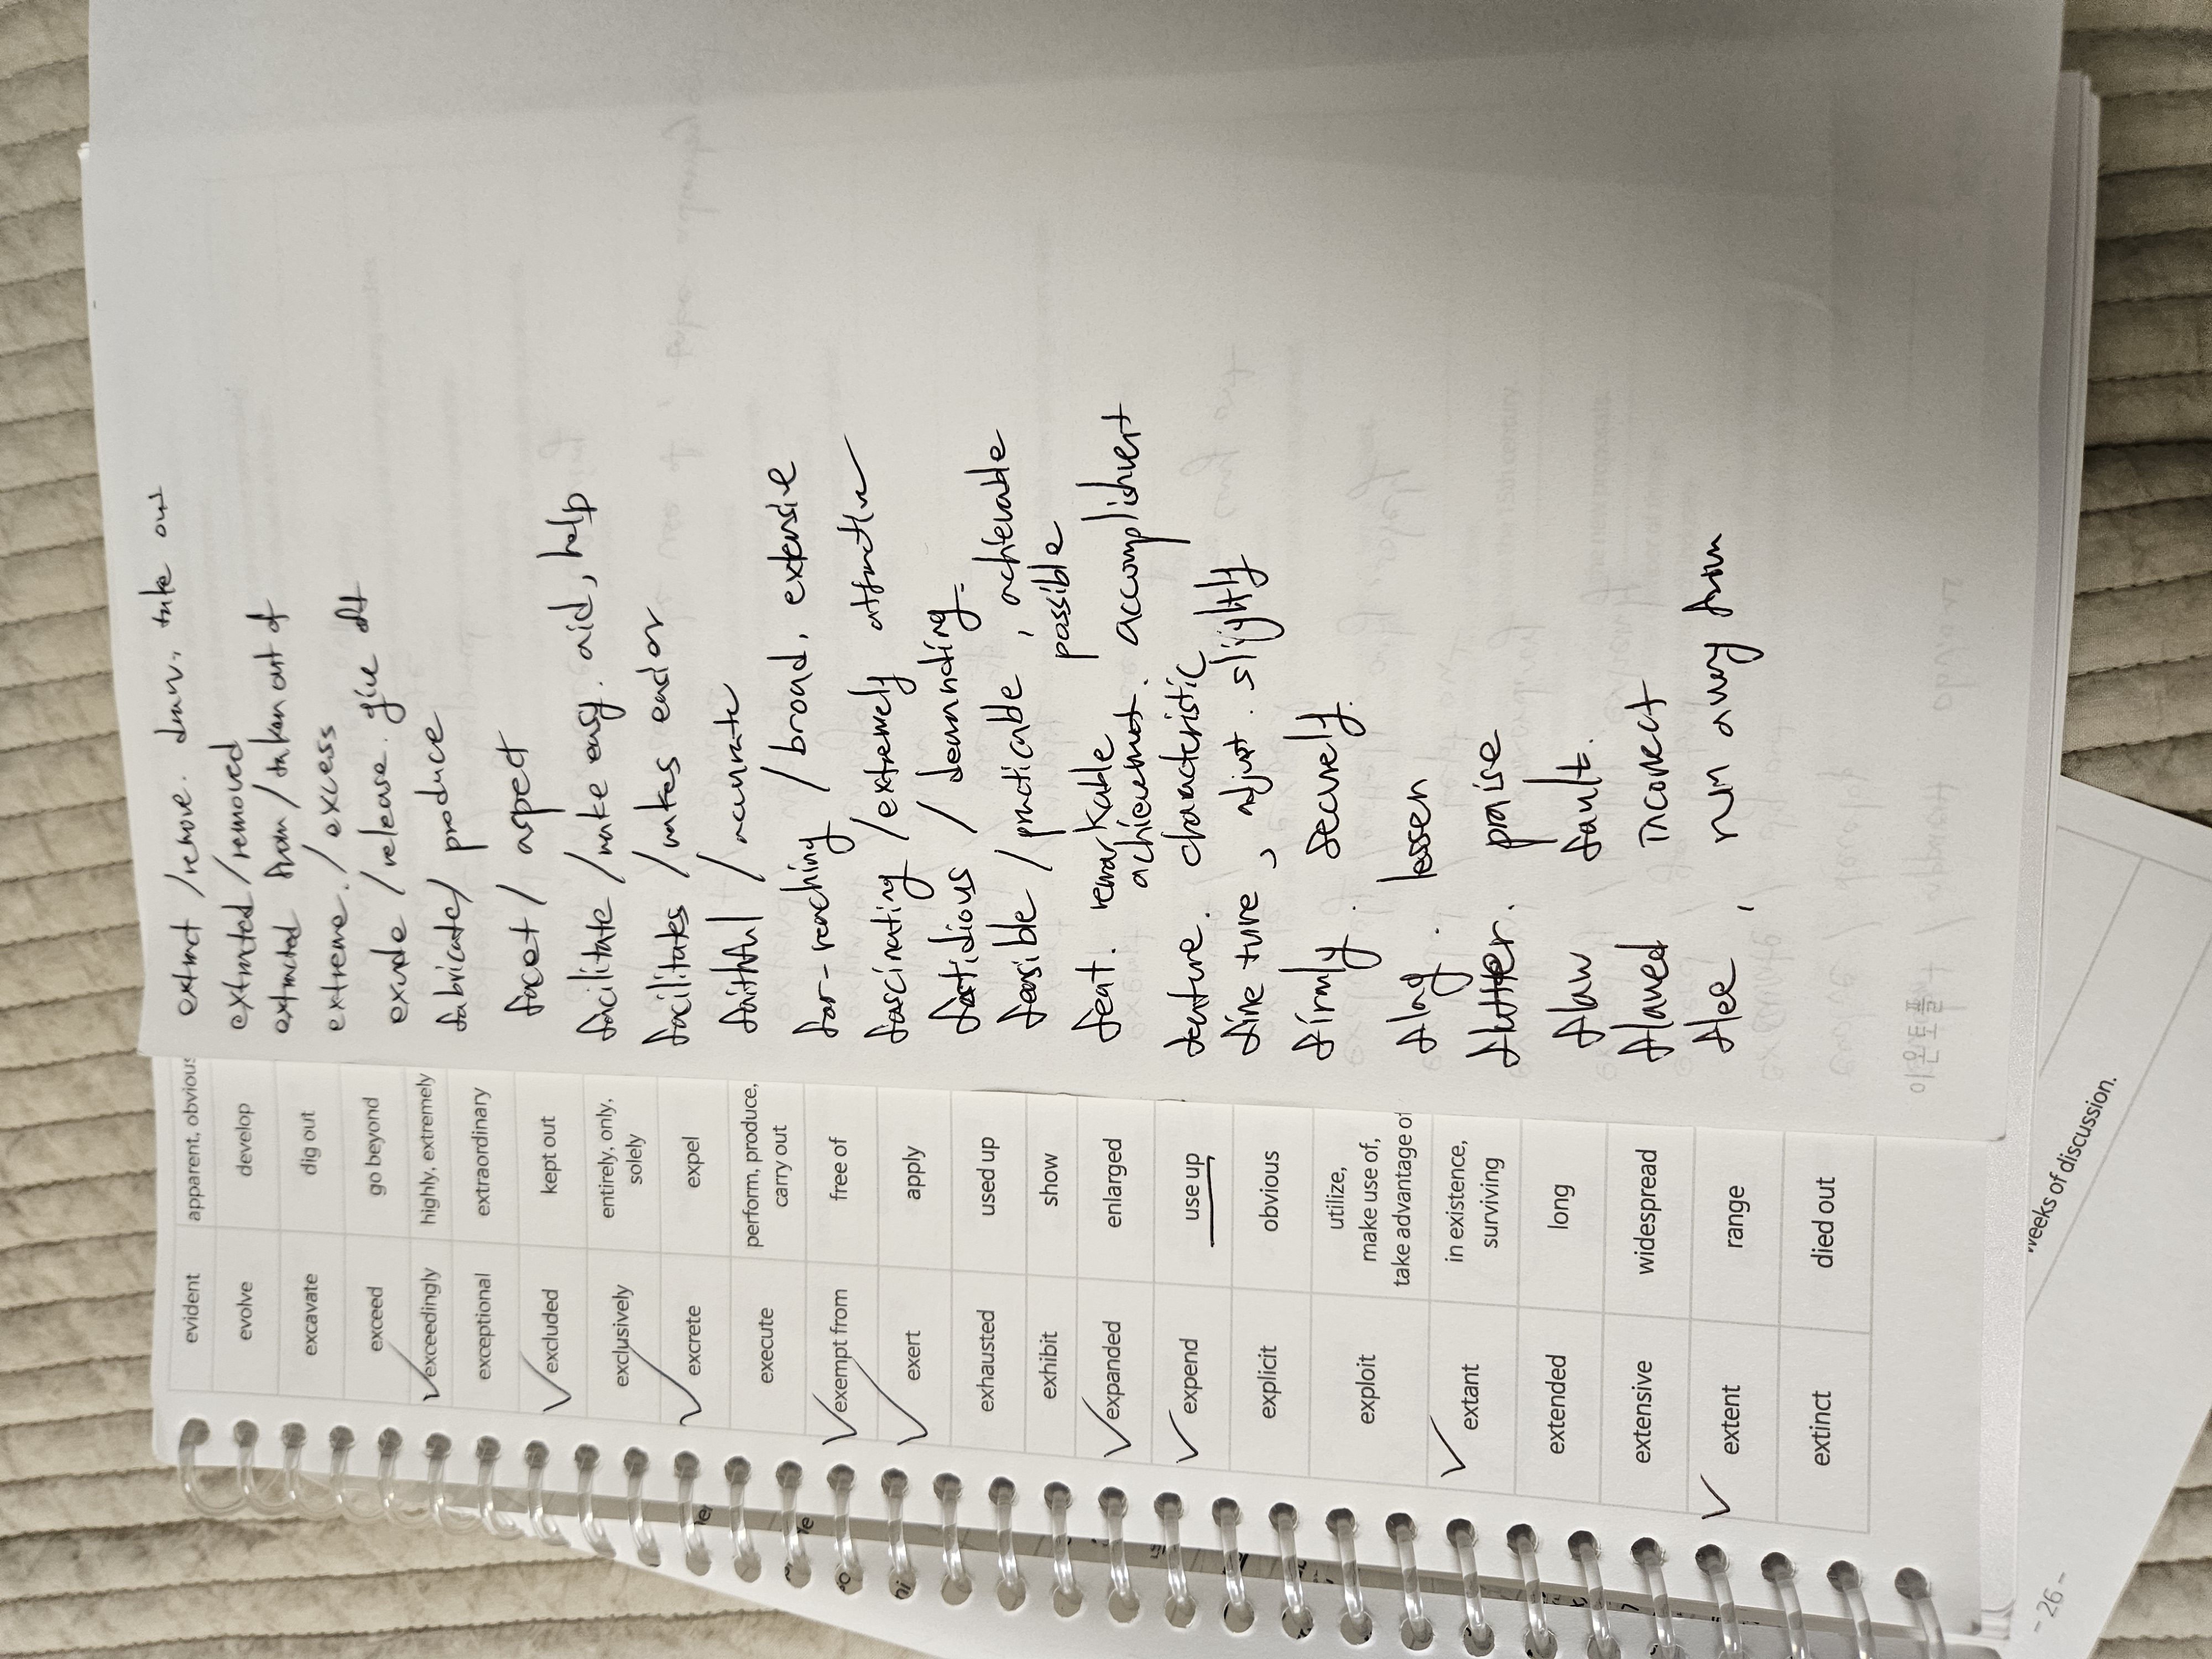 evident apparent, obvious
evolve develop
excavate dig out
exceed go beyond
exceedingly highly, extremely
exceptional extraordinary
excluded kept out
exclusively entirely, only,
solely
excrete expel
execute perform, produce,
carry out
exempt from free of
exert apply
exhausted used up
exhibit show
expanded enlarged
expend use up
explicit obvious
exploit utilize,
make use of,
take advantage of
extant in existence,
surviving
extended long
extensive widespread
extent range
extinct died out
extract / remove. draw. take out
extracted / removed
extracted from / taken out of
extreme. / excess
exude / release. give off
fabricate / produce
facet / aspect
facilitate / make easy. aid, help
facilitates / makes easier
faithful / accurate
far-reaching / broad, extensive
fascinating / extremely attractive
fastidious / demanding.
feasible / practicable, achievable
possible
feat. remarkable
achievement. accomplishment
feature. characteristic
fine tune, adjust. slightly
firmly. securely.
flag. lessen
flatter. praise
flaw fault.
flawed incorrect
flee, run away from
weeks of discussion.
- 26 -